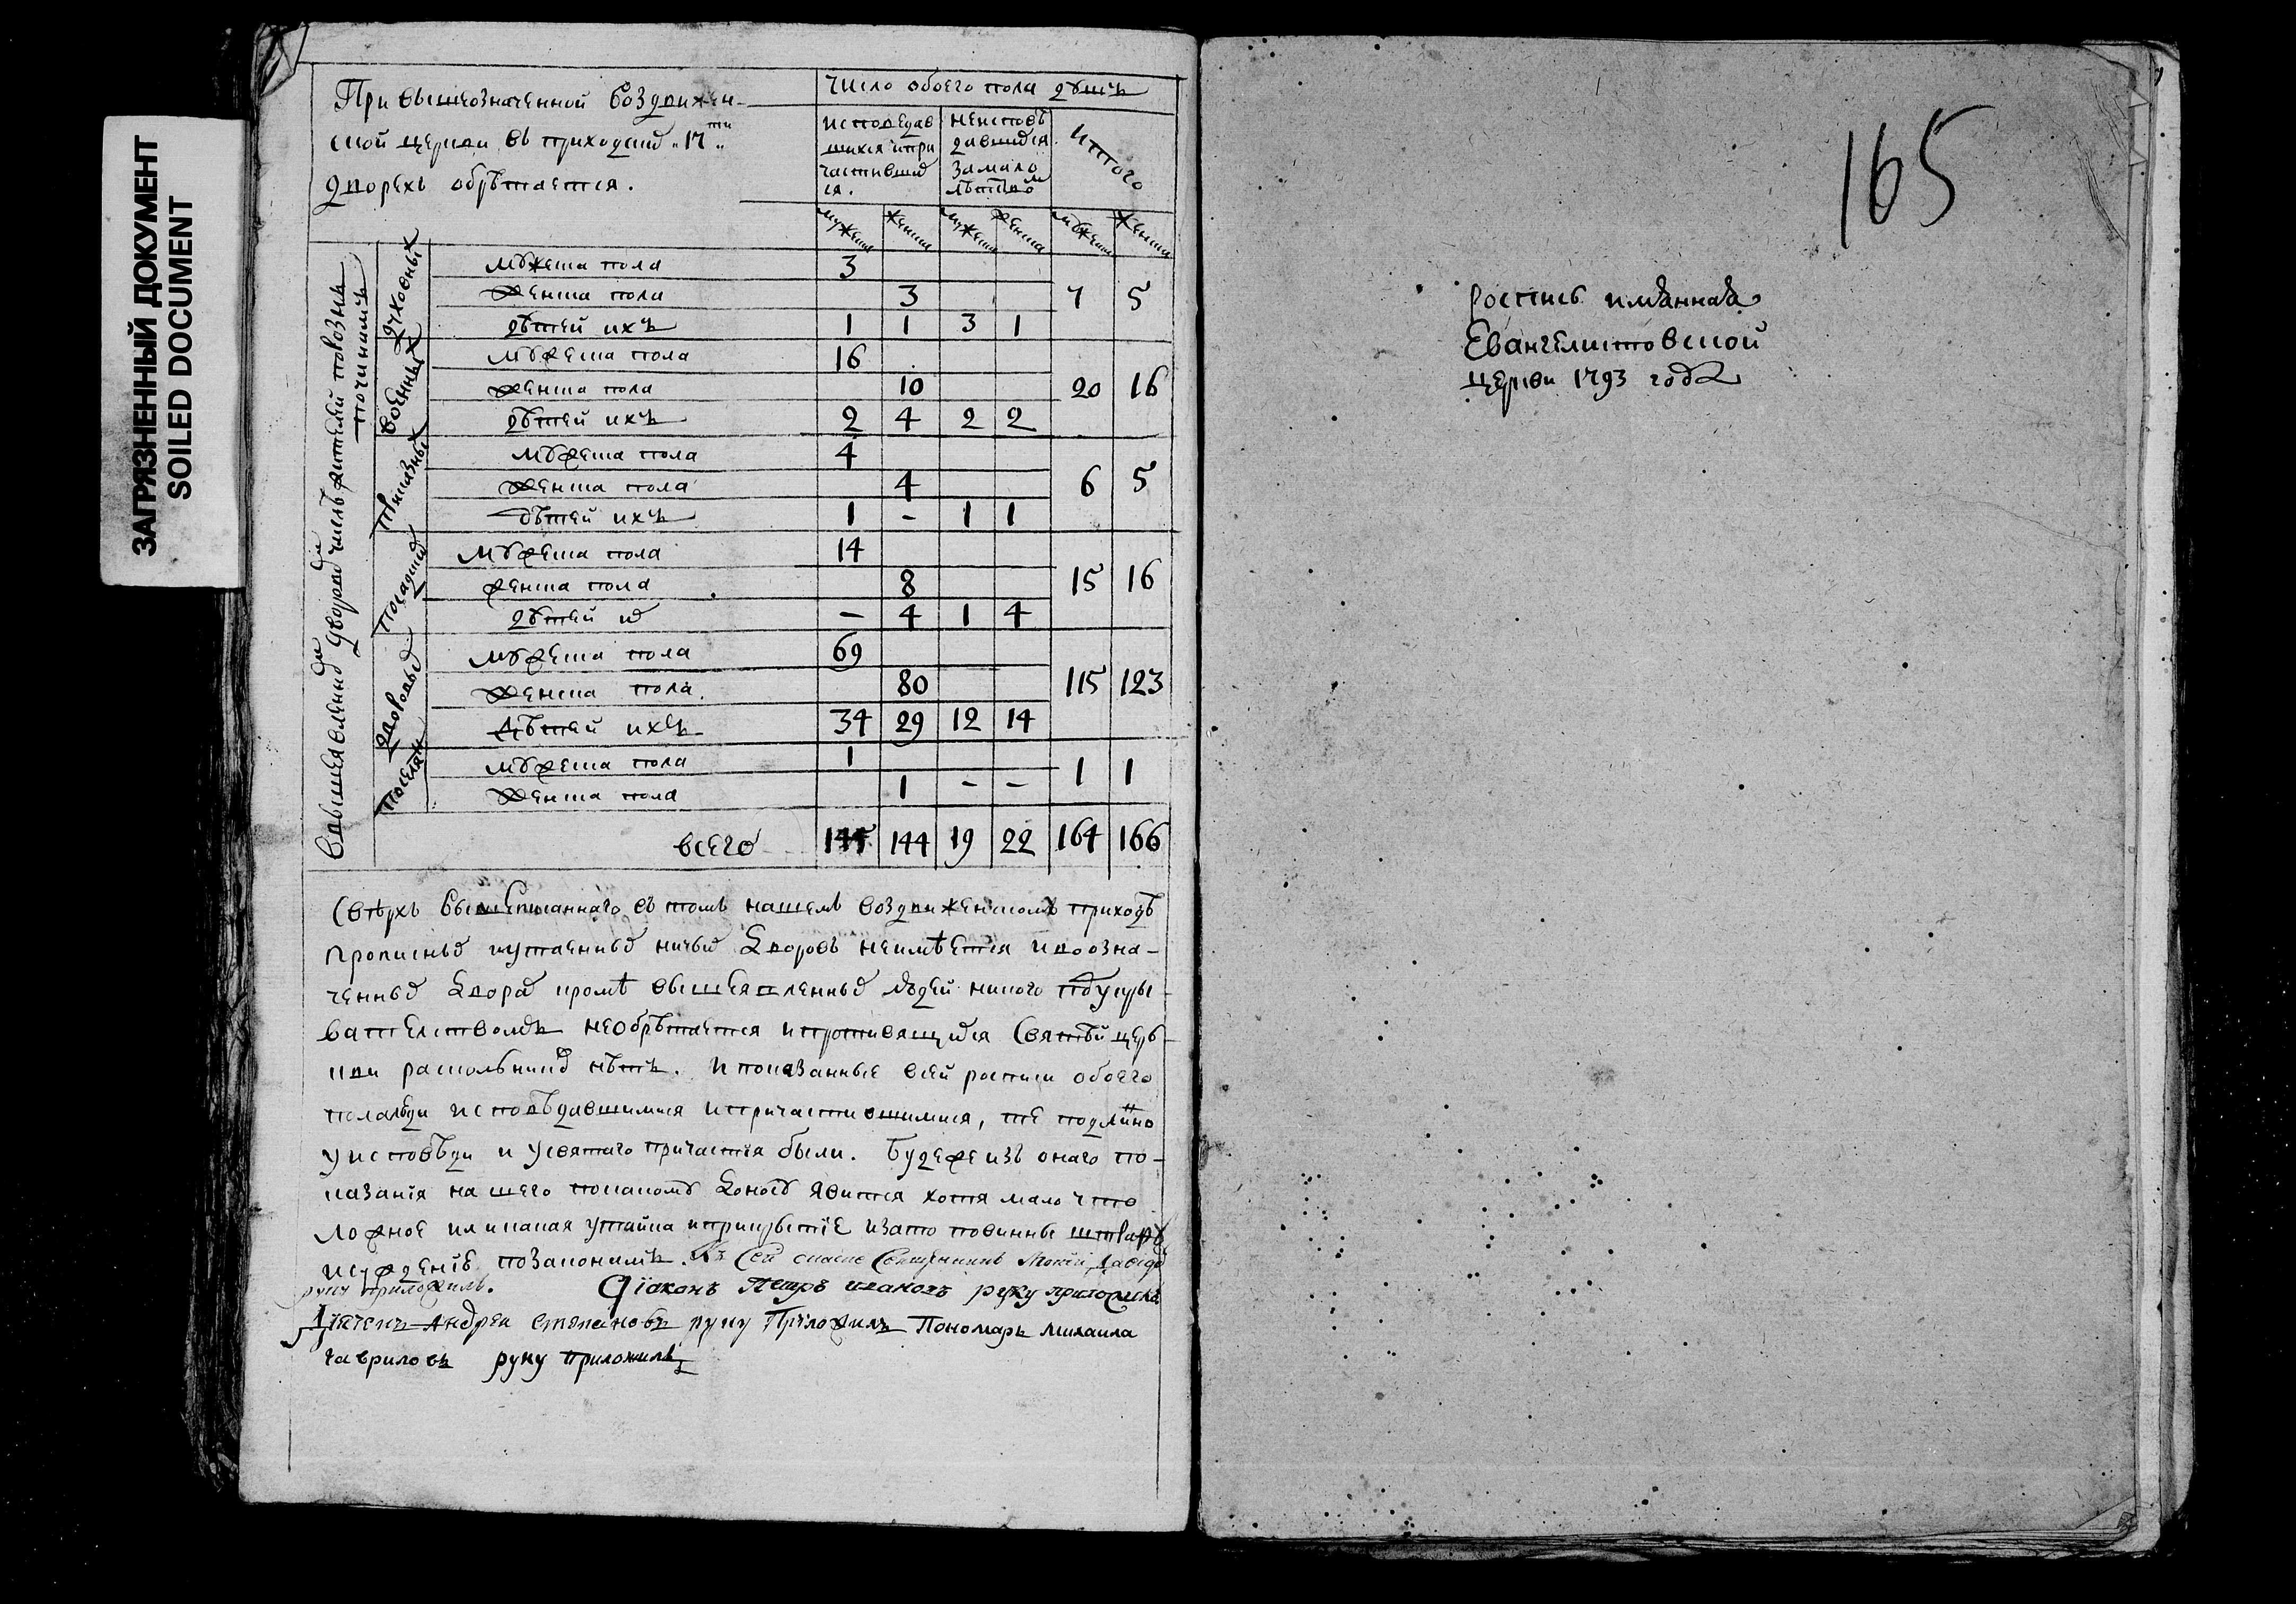 ЗАГРЯЗНЕННЫЙ ДОКУМЕНТ
SOILED DOCUMENT
При вышеозначенной воздвижен-
ской церкви въ приходскихъ „17ти„
дворехъ обрѣтается.
число обоего пола душъ
исповедав
шихся и при
частивших
ся.
неисповѣ
давшихся
за мало
лѣтством
итого
мужеска
женска
мужеска
женска
мужеска
женска
Вавышеявленных дворах числъ жителей повознь
почининимъ
духовных
мужеска пола 3
женска пола 3 7 5
дѣтей ихъ 1 1 3 1
военных
мужеска пола 16
женска пола 10 20 16
дѣтей ихъ 2 4 2 2
приказных
мужеска пола 4
женска пола 4 6 5
дѣтей ихъ 1 - 1 1
посадских
мужеска пола 14
женска пола 8 15 16
дѣтей их - 4 1 4
дворовых
мужеска пола 69
женска пола. 80 115 123
дѣтей ихъ 34 29 12 14
поселян
мужеска пола 1
женска пола 1 - - 1 1
всего 145 144 19 22 164 166
Сверхъ вышеписаннаго въ томъ нашемъ воздвиженскомъ приходѣ
прописных и утаенных ничьих дворовъ неимѣется и во озна-
ченных дворах кромѣ вышеявленных людей никого под укры-
вательствомъ необрѣтается и противящихся святѣй церь-
кви раскольников нѣтъ. и показанные в сей росписи обоего
пола люди исповѣдавшимися и причастившимися, те подлинно
у исповѣди и у святаго причастия были. Буде же изъ онаго по-
казанiя нашего покакому доносу явится хотя мало что
ложное или какая утайка и прикрытiе и за то повинны штрафу
и сужденiю позаконимъ. Къ сей сказке священникъ Моисей Давидо
руку приложилъ. Дiаконъ Петръ ивановъ руку приложилъ
Дiячекъ Андреи степановъ руку Приложилъ Пономарь михаила
гавриловъ руку приложилъ
165
роспись имянная
Евангелистовской
церкви 1793 года